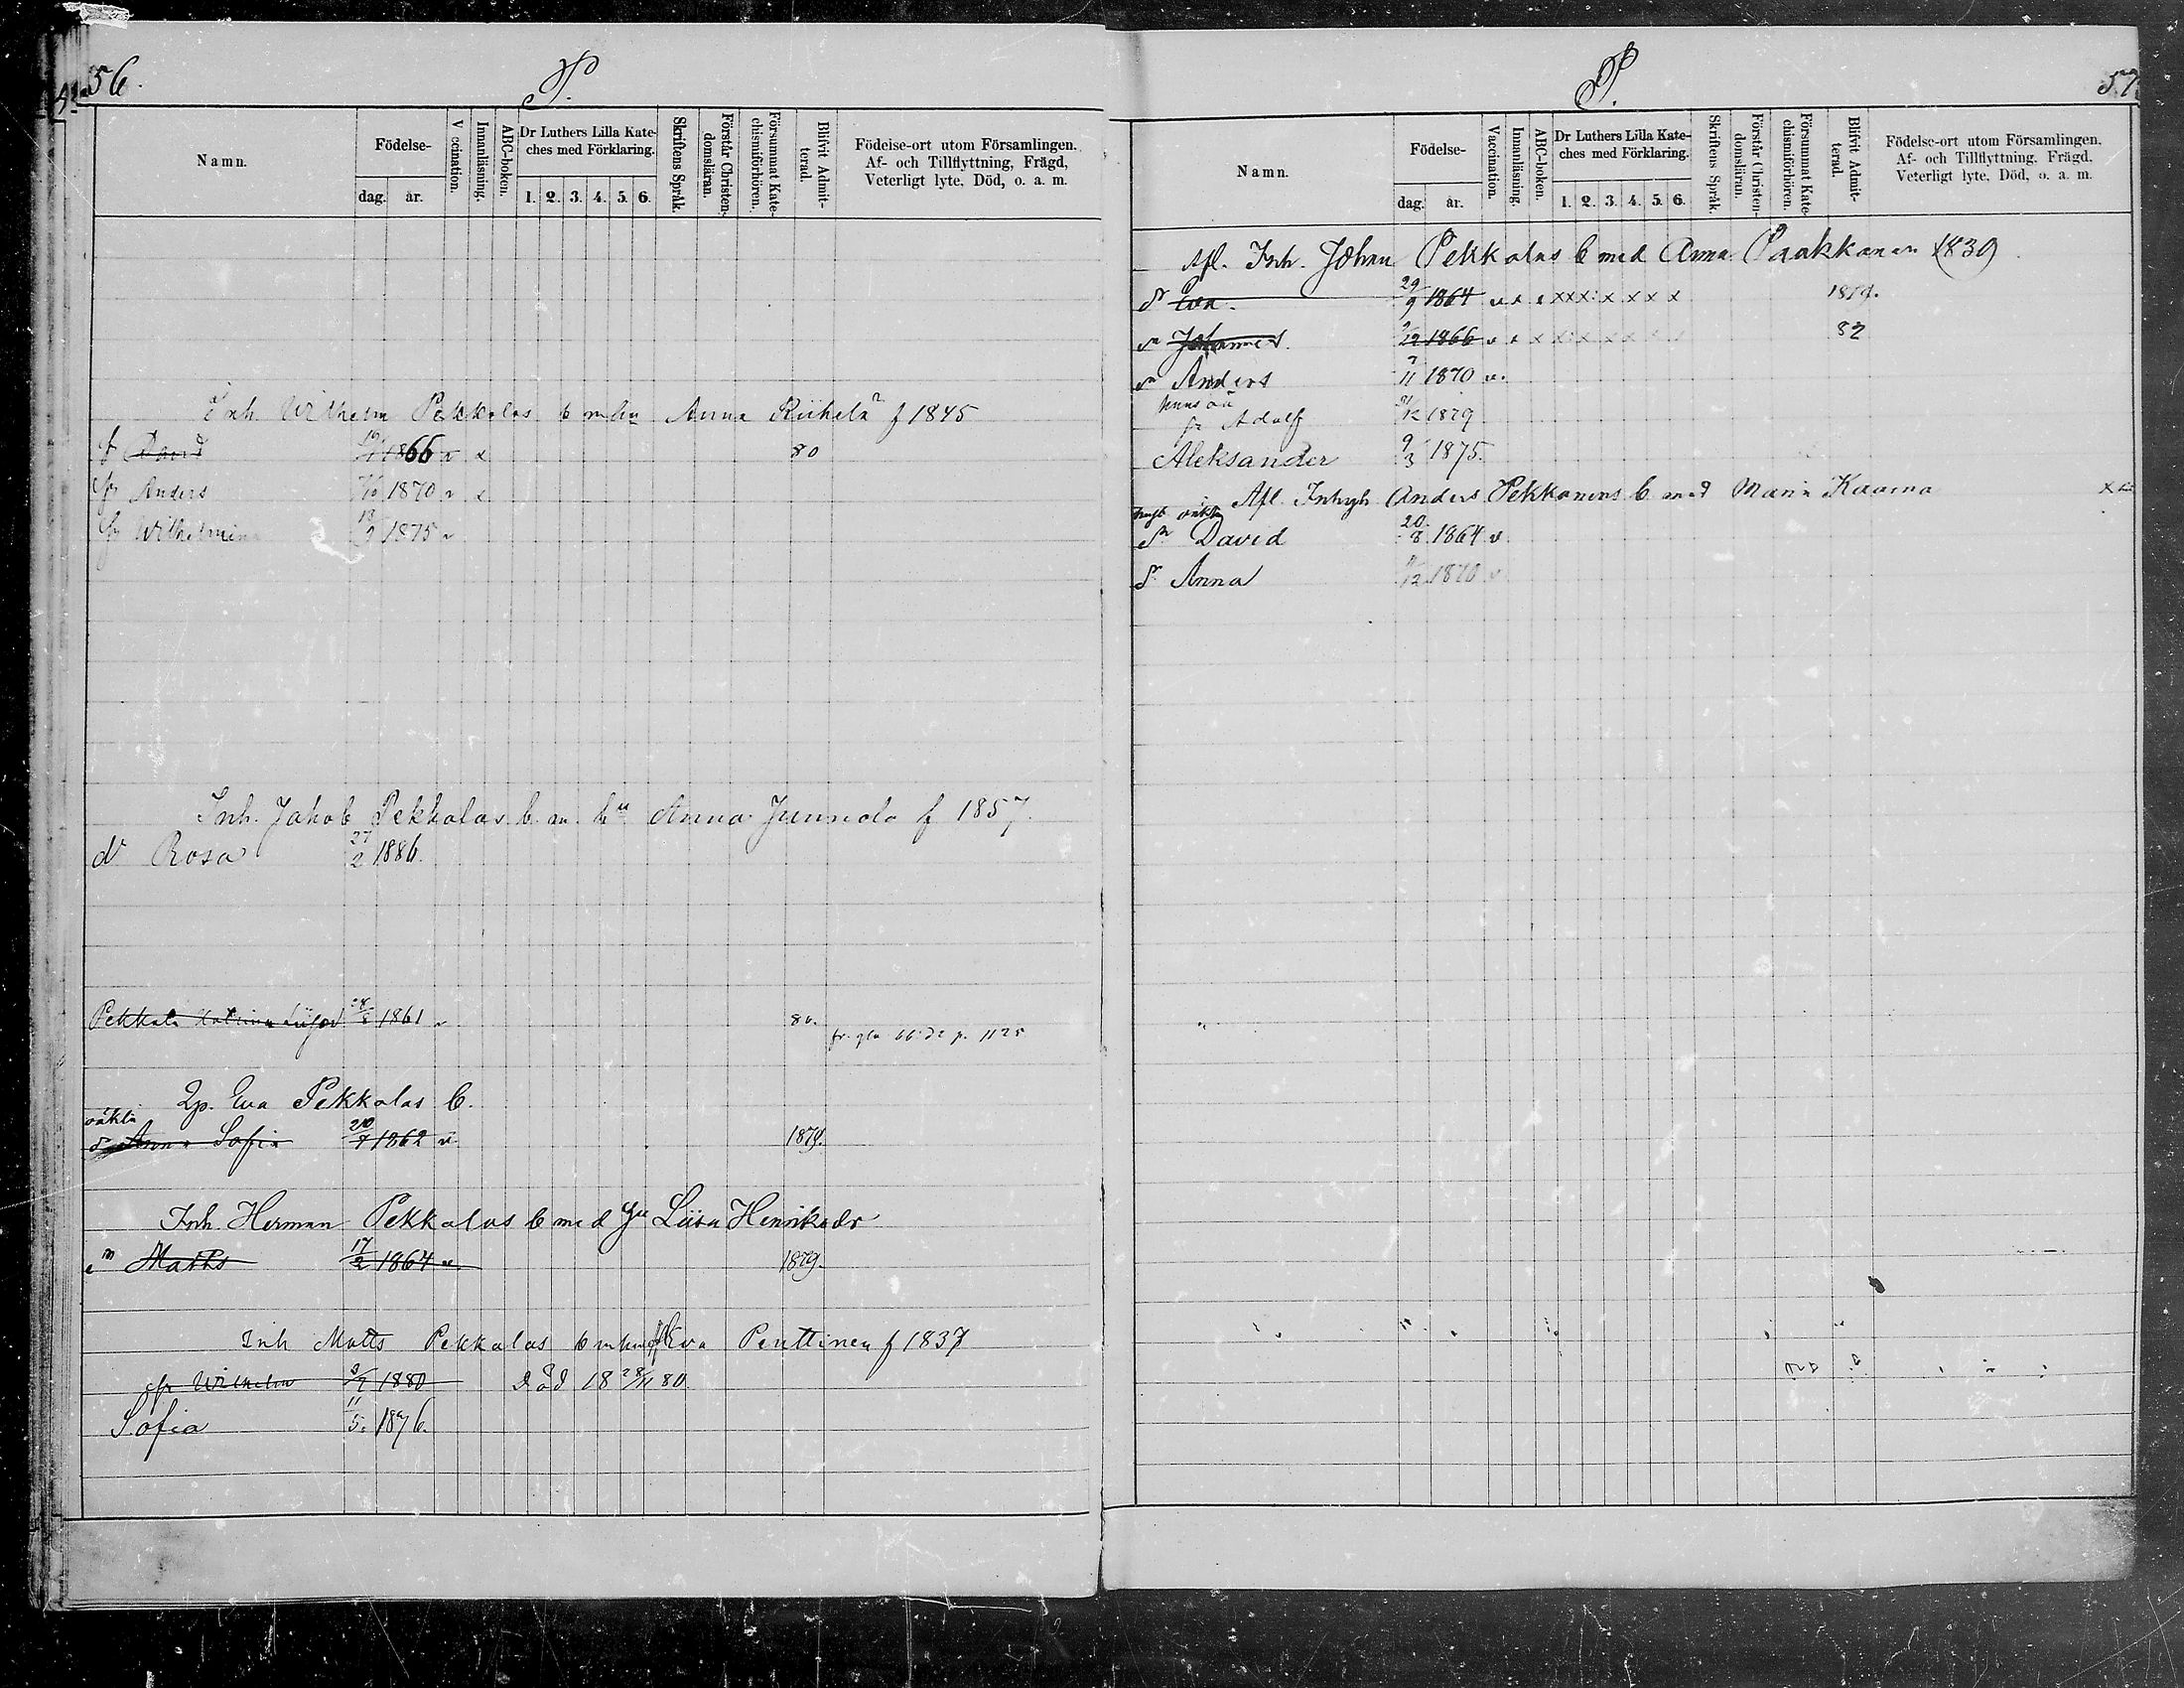 56.
P.
Namn.
Födelse-
dag. år.
Vaccination.
Innanläsning.
ABC-boken.
Dr Luthers Lilla Kate-
ches med Förklaring.
1. 2. 3. 4. 5. 6.
Skriftens Språk.
Förstår Christen-
domsläran.
Försummat Kate-
chismiförhören.
Blifvit Admit-
terad.
Födelse-ort utom Församlingen.
Af- och Tillflyttning, Frägd,
Veterligt lyte, Död, o. a. m.
Inh. Wilhelm Pekkalas b m hu Anna f 1845
David 1866 v x 80
Anders 1870 v x
Wilhelmina 1875 v
Inh. Jakob Pekkalas b. m. hu Anna Junnola f 1857.
dr Rosa 27/2 1886.
Pekkala Katrina 28/8 1861 v 80.
Eva Pekkalas b.
oäkta
dr Anna Sofia 20/7 1862 v 1879.
Inh. Herman Pekkalas b med Liisa Henriksdr
Matts 17/2 1864 v 1879.
Inh Matts Pekkalas b m hu Eva Penttinen f 1837
Wilhelm 1880 död 18 28/11 80
Sofia 11/5. 1876.
P.
57
Namn.
Födelse-
dag. år.
Vaccination.
Innanläsning.
ABC-boken.
Dr Luthers Lilla Kate-
ches med Förklaring.
1. 2. 3. 4. 5. 6.
Skriftens Språk.
Förstår Christen-
domsläran.
Försummat Kate-
chismiförhören.
Blifvit Admit-
terad.
Födelse-ort utom Församlingen,
Af- och Tillflyttning. Frägd.
Veterligt lyte, Död, o. a. m.
Afl. Inh. Johan Pekkalas b med Anna Paakkanen 1839
dr Eva. 29/9 1864 v x x xxx x x x x 1879.
sn Johannes 1866 v x x x x x x 82
sn Anders 7/11 1870 v.
Adolf 1879
Aleksander 9/3 1875.
Afl. Anders Pekkanens b med Maria Kaama
sn David 20/8 1864 v
dr Anna 1870 v